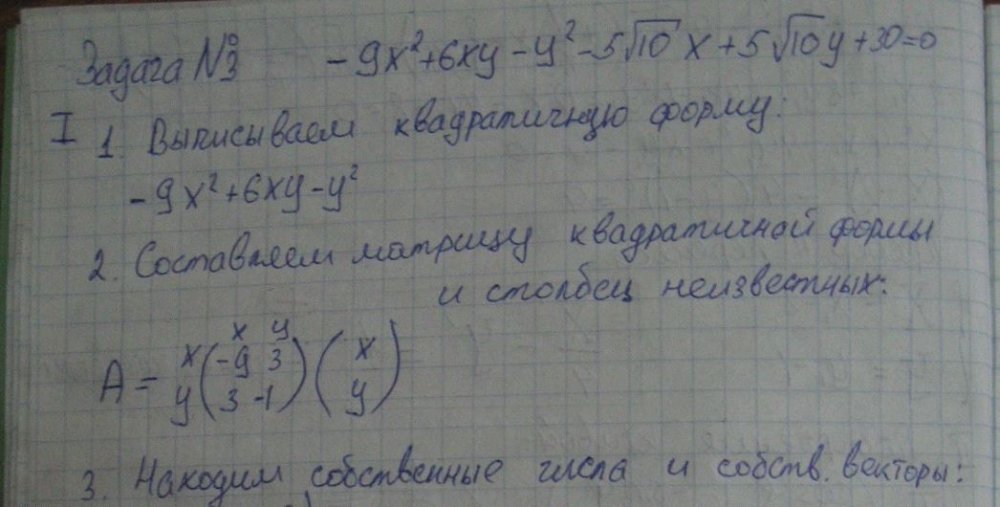 Задача №3 -9x²+6xy-y²-5√10 x+5√10 y+30=0
I 1. Выписываем квадратичную форму:
-9x²+6xy-y²
2. Составляем матрицу квадратичной формы
и столбец неизвестных:
x y
A = x(-9 3)(x)
y(3 -1)(y)
3. Находим собственные числа и собств. векторы: